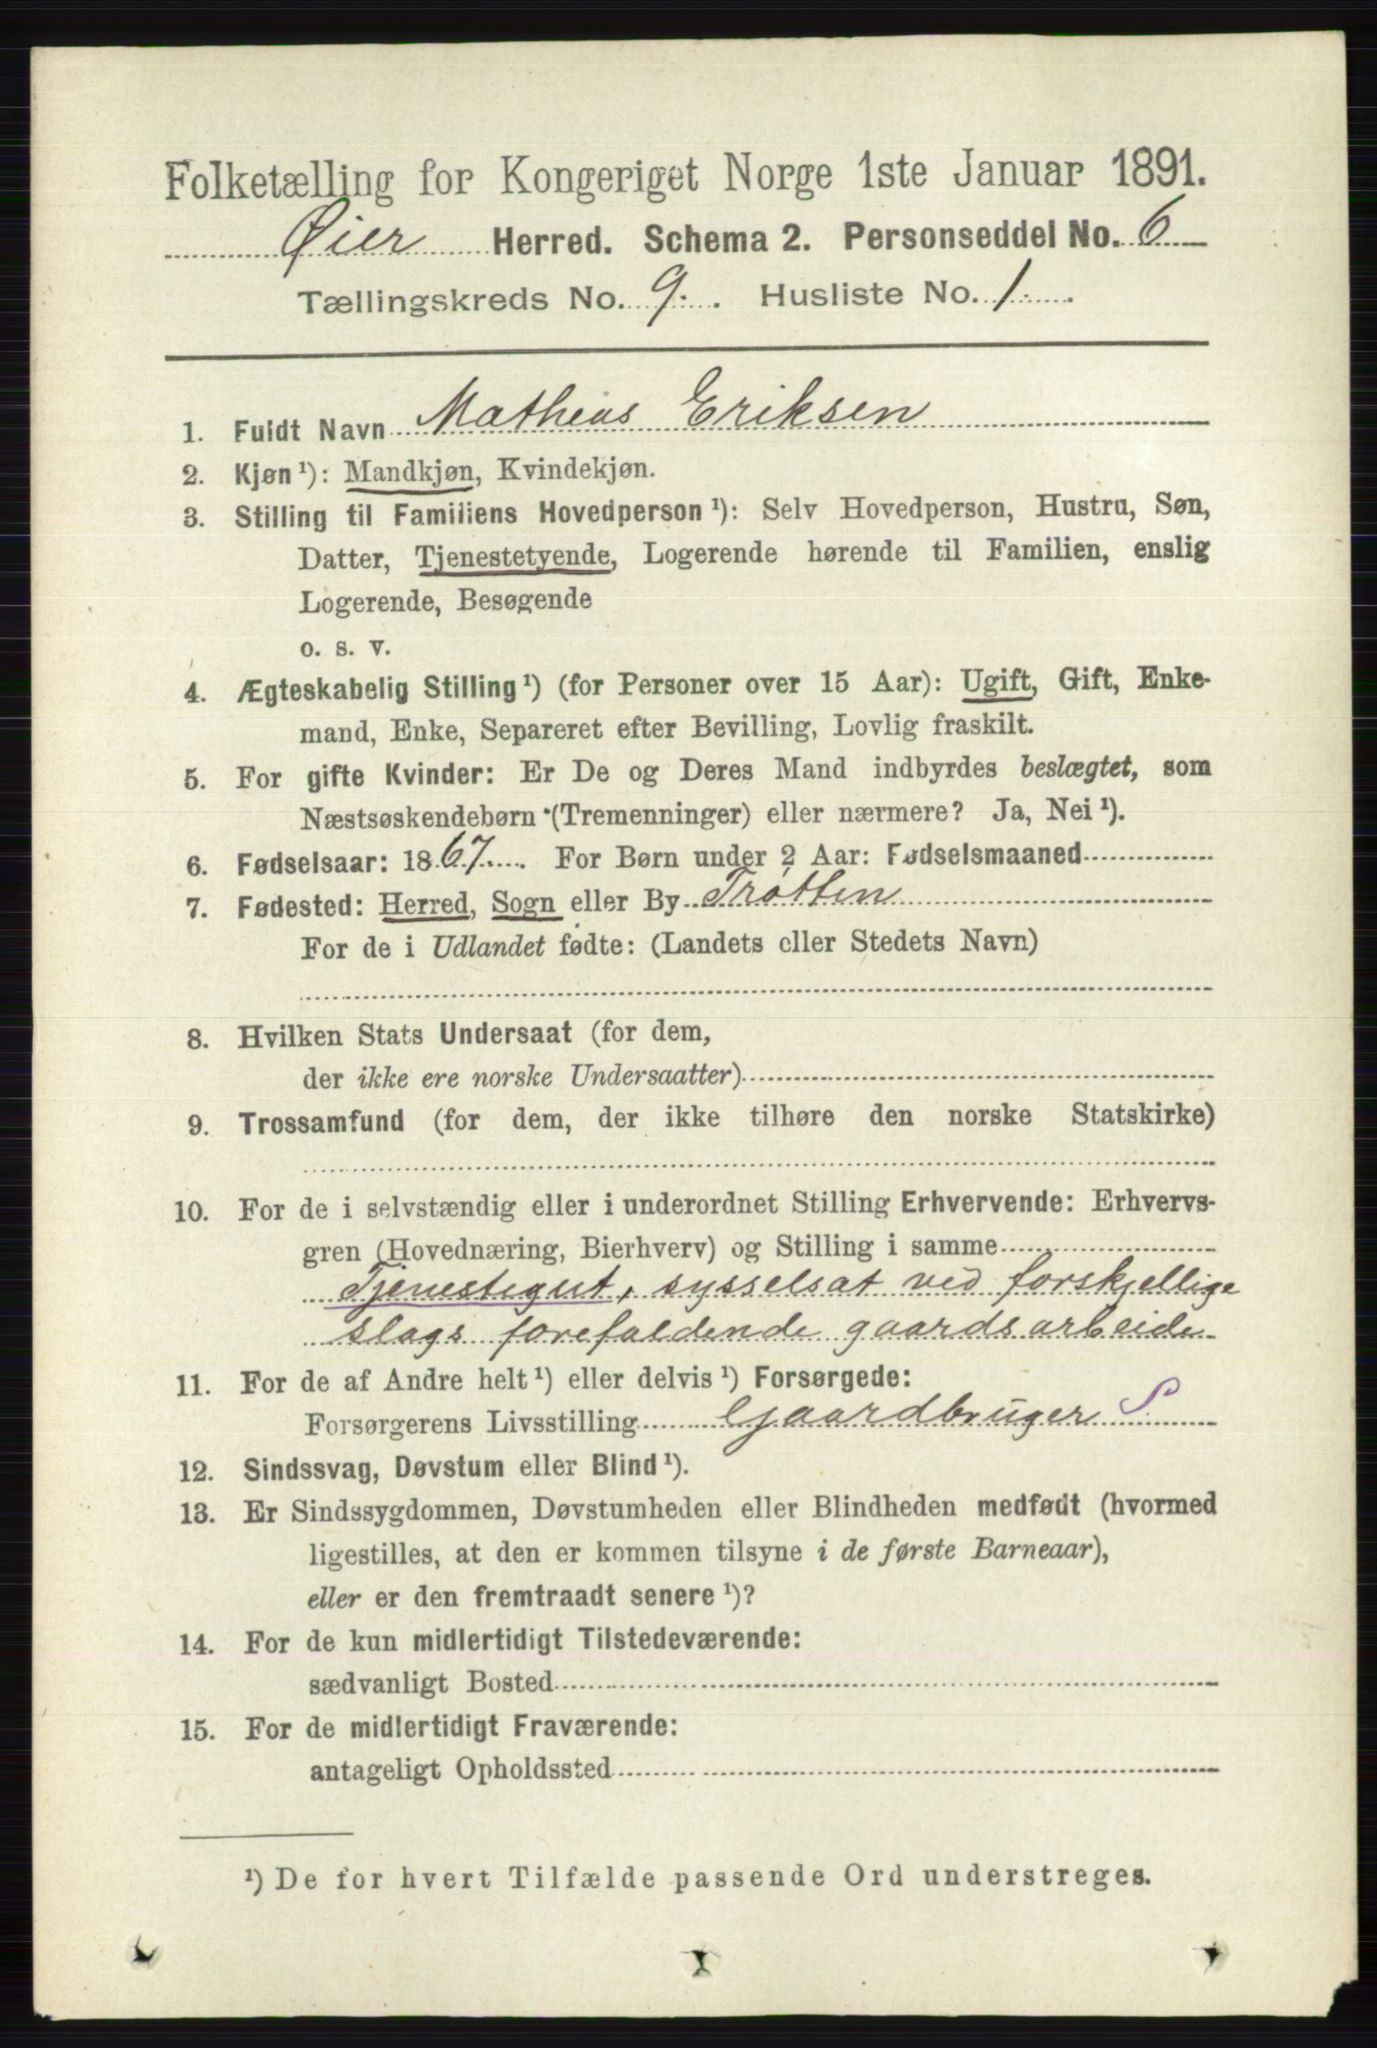 Folketælling for Kongeriget Norge 1ste Januar 1891.
Øier Herred. Schema 2. Personseddel No. 6
Tællingskreds No. 9. Husliste No. 1
1. Fuldt Navn Matheas Eriksen
2. Kjøn ¹): Mandkjøn, Kvindekjøn.
3. Stilling til Familiens Hovedperson ¹): Selv Hovedperson, Hustru, Søn,
Datter, Tjenestetyende, Logerende hørende til Familien, enslig
Logerende, Besøgende
o. s. v.
4. Ægteskabelig Stilling ¹) (for Personer over 15 Aar): Ugift, Gift, Enke-
mand, Enke, Separeret efter Bevilling, Lovlig fraskilt.
5. For gifte Kvinder: Er De og Deres Mand indbyrdes beslægtet, som
Næstsøskendebørn (Tremenninger) eller nærmere? Ja, Nei ¹).
6. Fødselsaar: 1867. For Børn under 2 Aar: Fødselsmaaned
7. Fødested: Herred, Sogn eller By Trøtten
For de i Udlandet fødte: (Landets eller Stedets Navn)
8. Hvilken Stats Undersaat (for dem,
der ikke ere norske Undersaatter)
9. Trossamfund (for dem, der ikke tilhøre den norske Statskirke)
10. For de i selvstændig eller i underordnet Stilling Erhvervende: Erhvervs-
gren (Hovednæring, Bierhverv) og Stilling i samme
Tjenestegut, sysselsat ved forskjellige
slags forefaldende gaardsarbeide
11. For de af Andre helt ¹) eller delvis ¹) Forsørgede:
Forsørgerens Livsstilling Gaardbruger S.
12. Sindssvag, Døvstum eller Blind ¹).
13. Er Sindssygdommen, Døvstumheden eller Blindheden medfødt (hvormed
ligestilles, at den er kommen tilsyne i de første Barneaar),
eller er den fremtraadt senere ¹)?
14. For de kun midlertidigt Tilstedeværende:
sædvanligt Bosted
15. For de midlertidigt Fraværende:
antageligt Opholdssted
¹) De for hvert Tilfælde passende Ord understreges.